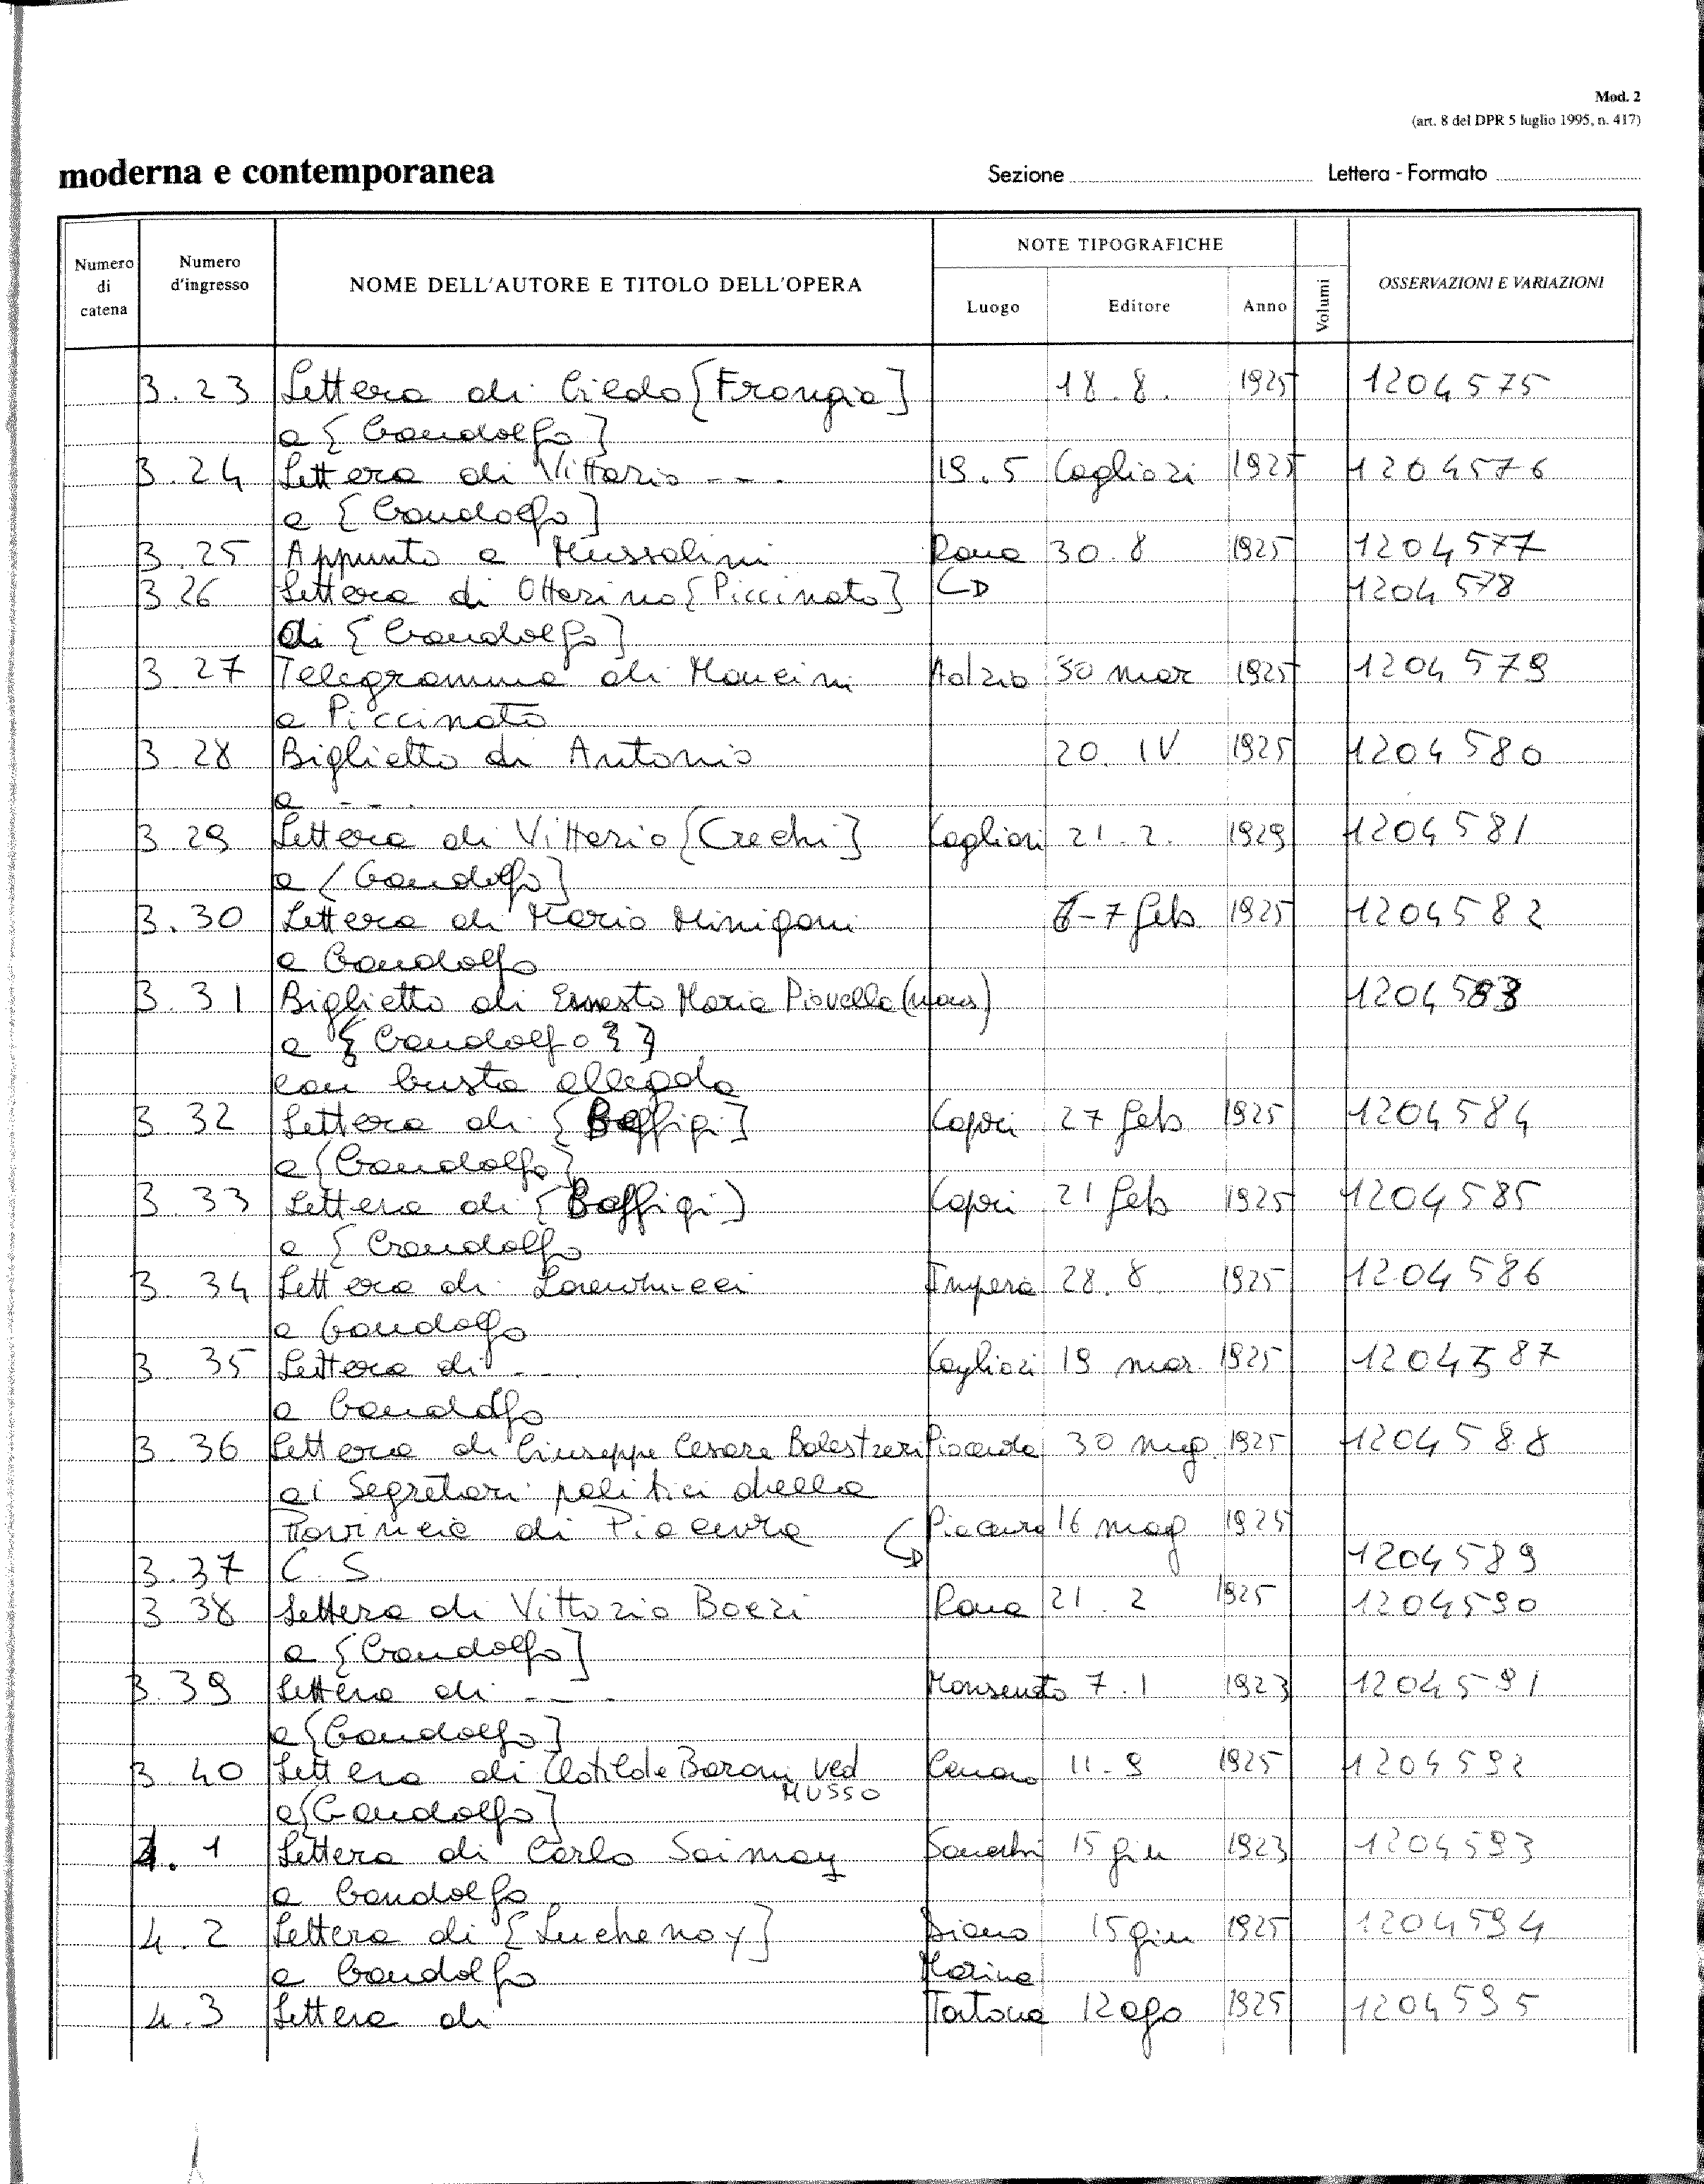 Mod. 2
(art. 8 del DPR 5 luglio 1995, n. 417)
moderna e contemporanea Sezione Lettera - Formato
Numero di catena Numero d'ingresso NOME DELL'AUTORE E TITOLO DELL'OPERA NOTE TIPOGRAFICHE Luogo Editore Anno Volumi OSSERVAZIONI E VARIAZIONI
3.23 Lettera di [Frongia] 18.8. 1925 1204575
a [Gandolfo]
3.24 Lettera di Vittorio --- 19.5 Cagliari 1925 1204576
a [Gandolfo]
3.25 Appunto a Mussolini Roma 30.8 1925 1204577
3.26 Lettera di Ottorino [Piccinato] 1204578
di [Gandolfo]
3.27 Telegramma di Mancini 30 mar 1925 1204579
a Piccinato
3.28 Biglietto di Antonio 20. IV 1925 1204580
a ---
3.29 Lettera di Vittorio [Crechi] Cagliari 21.2. 1929 1204581
a [Gandolfo]
3.30 Lettera di Mario Minigoni 6-7 feb 1925 1204582
a Gandolfo
3.31 Biglietto di Ernesto Maria Piovella (mons) 1204583
a [Gandolfo?]
con busta allegata
3.32 Lettera di [Baffigi] Capri 27 feb 1925 1204584
a [Gandolfo]
3.33 Lettera di [Baffigi] Capri 21 feb 1925 1204585
a [Gandolfo
3.34 Lettera di Imperia 28.8 1925 1204586
a Gandolfo
3.35 Lettera di --- Cagliari 19 mar 1925 1204587
a Gandolfo
3.36 Lettera di Giuseppe Cesare Balestrieri Piacenza 30 mag. 1925 1204588
ai Segretari politici della
Provincia di Piacenza Piacenza 16 mag 1925
3.37 C.S. 1204589
3.38 Lettera di Vittorio Boeri Roma 21.2 1925 1204590
a [Gandolfo]
3.39 Lettera di --- 7.1 1923 1204591
a [Gandolfo]
3.40 Lettera di Clotilde Baroni ved MUSSO 11.9 1925 1204592
a [Gandolfo]
4.1 Lettera di Carlo Saimay 15 giu 1923 1204593
a Gandolfo
4.2 Lettera di [Luchenoy] Diano 15 giu 1925 1204594
a Gandolfo Marina
4.3 Lettera di Tortona 12 ago 1925 1204595